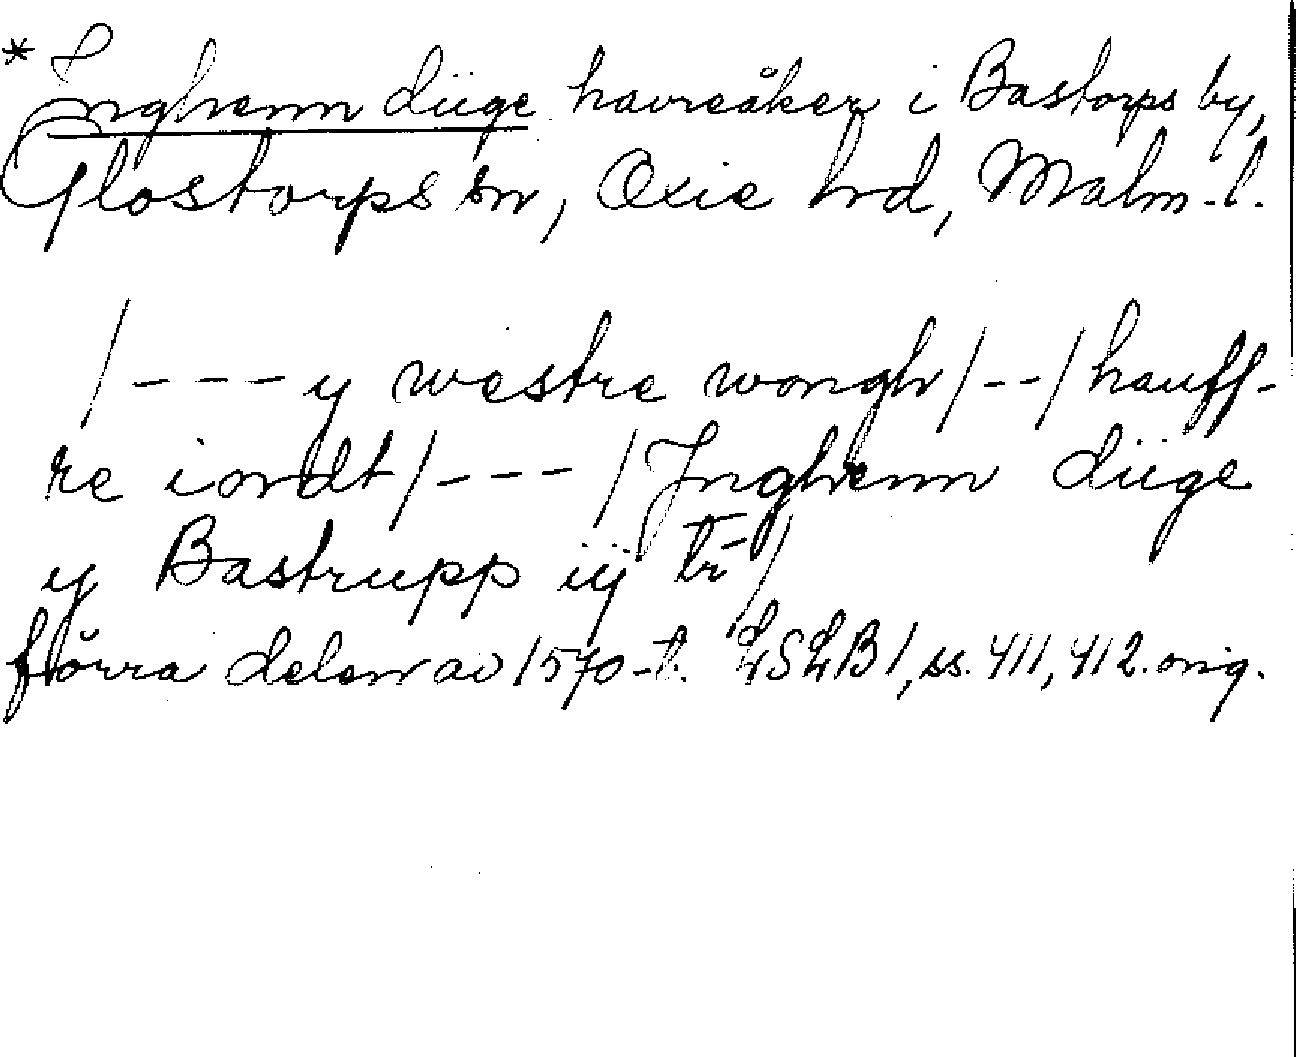 * Inghenn diige havreåker i Bastorps by,
Glostorps sn, Oxie hrd, Malm-l.
/---y westre wongh/--/hauff-
re iordt/---/Jnghenn diige
y Bastrupp iij tr̄/
förra delen av 1570-t. LSLB1, ss. 411, 412. orig.